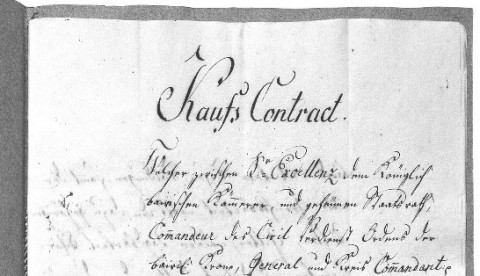 Kaufs Contract.
Welcher zwischen Sr Excellenz dem Königlich
baierischen Kämerer, und geheimen Staatsrath,
Commandeur des Civil Verdienst Ordens der
baieris. Krone, General und Kreis Commandant